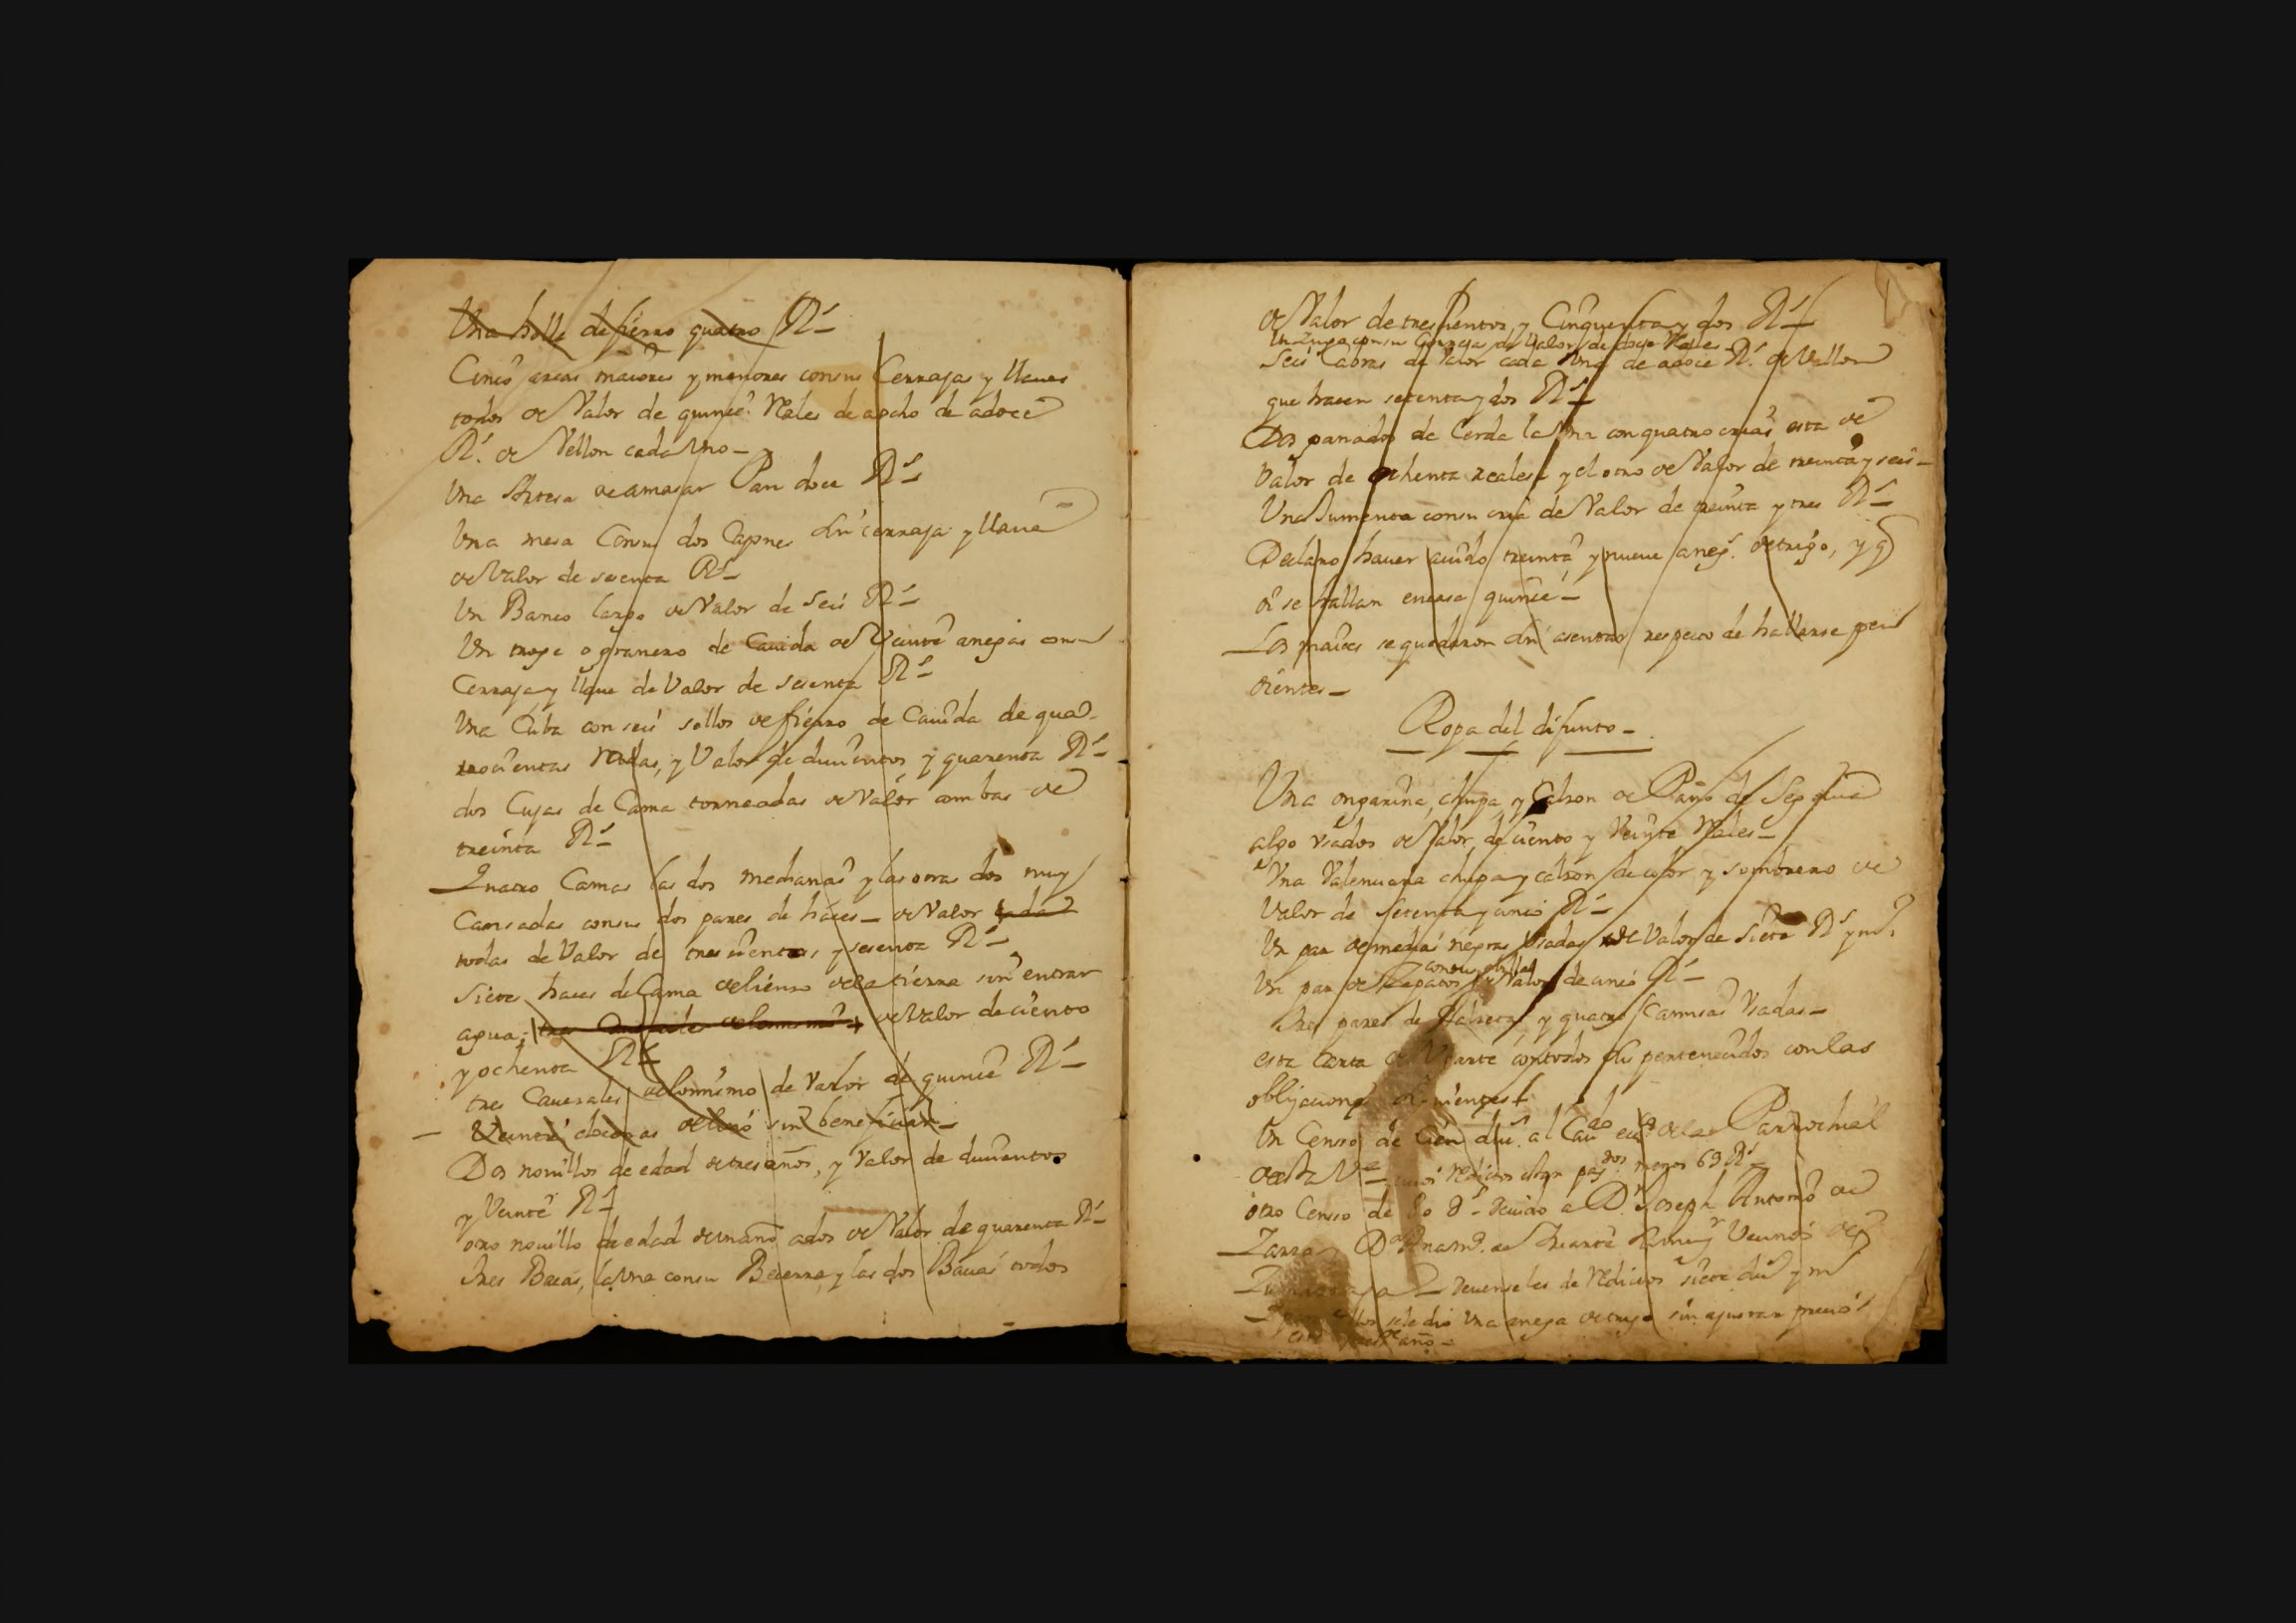 Una holla de fierro quatro Rs
Cinco arcas maiores y menores con sus Cerrajas y llaues
todos de Valor de quince Reales de aocho de adoce
Rs. de Vellon cada Uno
Una Artesa de amasar Pan doce Rs
Una mesa Con sus dos Cajones sin cerraja y llaue
de Valor de sesenta Rs
Un Banco largo de Valor de seis Rs
Un troje o granero de Cauida de Veinte anegas con su
Cerraja y llaue de Valor de sesenta Rs
Una Cuba con seis sellos de fierro de Cauida de qua
trocientas, y Valor de ducientos y quarenta Rs
dos Cujas de Cama torneadas de Valor ambas de
treinta Rs
Quatro Camas las dos medianas y las otras dos muy
Cansadas con sus dos pares de haces de Valor cada
todas de Valor de trescientos y sesenta Rs
Siete haces de Cama de lienzo de la tierra sin entrar
agua; tres de lo mismo de Valor de ciento
y ochenta Rs
tres Cauezales de lo mismo de Valor de quince Rs
Veinte de lino sin beneficiar
Dos nouillos de edad de tres años, y Valor de ducientos
y Veinte Rs
otro nouillo de edad de un año ados de Valor de quarenta Rs
Tres Bacas, la Una con su Becerra y las dos Bacas todos
de Valor de trescientos y Cinquenta y dos Rs
Un con su Cerraja de Valor de doce Reales
Seis Cabras de Valor cada Una de adoce Rs. de Vellon
que hacen setenta y dos Rs
Dos ganados de Cerda la Una con quatro crias esta de
Valor de ochenta reales y el otro de Valor de treinta y seis
Una Jumenta con su cria de Valor de treinta y tres Rs
Declaro hauer treinta y nueue anegs. de trigo, y q
se hallan en casa quince
Los maices se quedaron sin asentar respecto de hallarse pen
dientes
Ropa del difunto
Una ongarina, chupa y Calzon de Paño de Segouia
algo Usados de Valor de ciento y Veinte Reales
Una Valenciana chupa y calzon de color y sombrero de
Valor de Setenta y cinco Rs
Un par de medias negras Usadas de Valor de siete Rs y mo.
con su ebillas
Un par de Zapatos de Valor de cinco Rs
Tres pares de Calcetas y quatro Camisas Usadas
esta Carta de con todos sus pertenecidos con las
obligaciones siguientes
Un Censo de Cien dus. al Caudo ecco de la Parrochial
de esta Va cuios Reditos estan pagdos menos 69 Rs
otro Censo de 80 ds. deuido a Dn Joseph Antonio de
Zarra y Da Ana Ma. de Uriarte Vecinos de
deuenseles de Reditos siete dus y mo
se le dio Una anega de trigo sin ajustar precio
este año